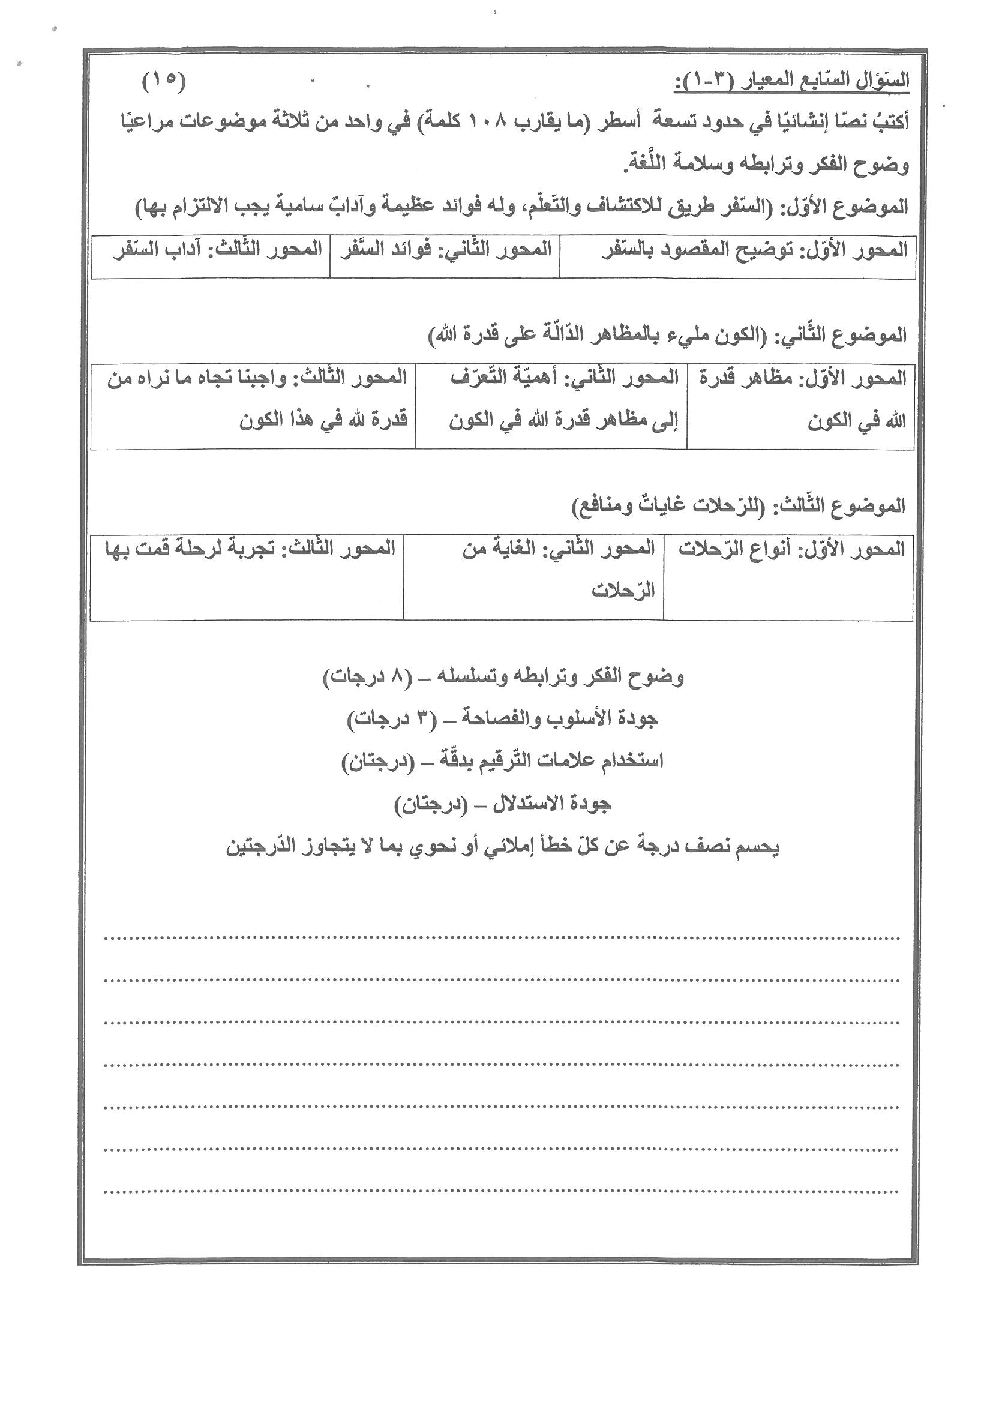 السّؤال السّابع المعيار (٣-١): (١٥)
أكتبُ نصّا إنشائيّا في حدود تسعة أسطر (ما يقارب ١٠٨ كلمة) في واحد من ثلاثة موضوعات مراعيًا
وضوح الفكر وترابطه وسلامة اللُّغة.
الموضوع الأوّل: (السّفر طريق للاكتشاف والتّعلّم، وله فوائد عظيمة وآدابٌ سامية يجب الالتزام بها)
المحور الأوّل: توضيح المقصود بالسّفر المحور الثّاني: فوائد السَّفر المحور الثّالث: آداب السّفر
الموضوع الثّاني: (الكون مليء بالمظاهر الدّالّة على قدرة الله)
المحور الأوّل: مظاهر قدرة المحور الثّاني: أهميّة التّعرّف المحور الثّالث: واجبنا تجاه ما نراه من
الله في الكون إلى مظاهر قدرة الله في الكون قدرة لله في هذا الكون
الموضوع الثّالث: (للرّحلات غاياتٌ ومنافع)
المحور الأوّل: أنواع الرّحلات المحور الثّاني: الغاية من المحور الثّالث: تجربة لرحلة قمت بها
الرّحلات
وضوح الفكر وترابطه وتسلسله – (٨ درجات)
جودة الأسلوب والفصاحة – (٣ درجات)
استخدام علامات التّرقيم بدقّة – (درجتان)
جودة الاستدلال – (درجتان)
يحسم نصف درجة عن كلّ خطأ إملائي أو نحوي بما لا يتجاوز الدّرجتين